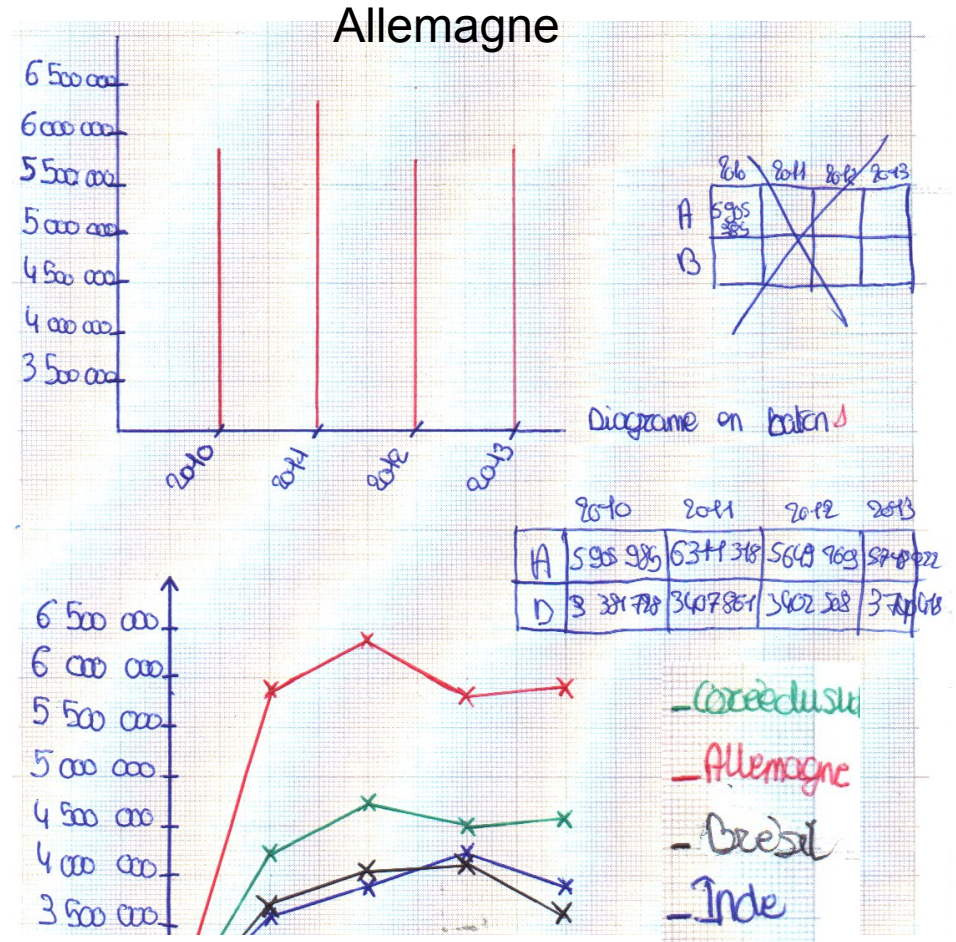 Allemagne
6 500 000
6 000 000
5 500 000
5 000 000
4 500 000
4 000 000
3 500 000
2010 2011 2012 2013
2010 2011 2012 2013
A 5 905 985
B
Diagrame en batons
2010 2011 2012 2013
A 5 905 985 6311 318 5649 269
D 3 381 728 3407 861 3402 508
6 500 000
6 000 000
5 500 000
5 000 000
4 500 000
4 000 000
3 500 000
Coréedusud
Allemagne
Brésil
Inde